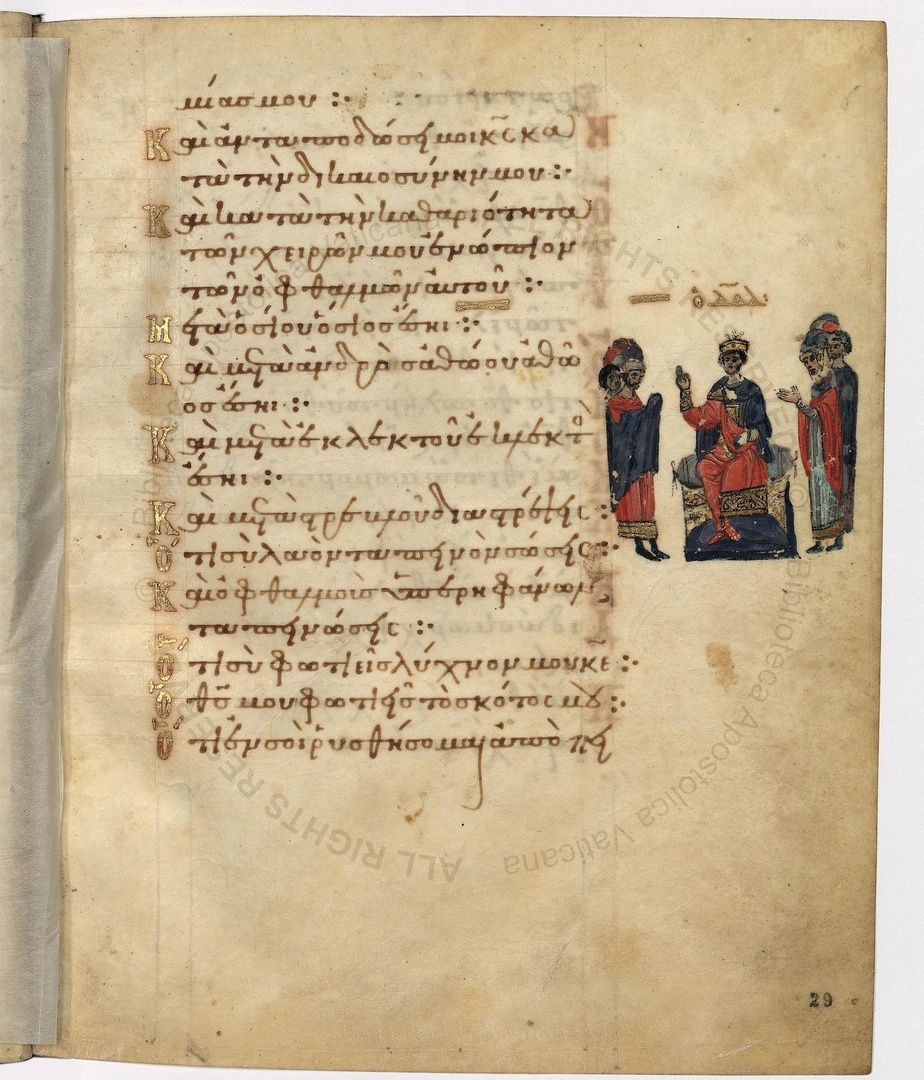 μίας μου :·
Καὶ ἀνταποδώσει μοι κ̅ς̅ κα
τὰ τὴν δικαιοσύνην μου :·
Καὶ κατὰ τὴν καθαριότητα
τῶν χειρῶν μου ἐνώπιον
τῶν ὀφθαλμῶν αὐτοῦ :·
Μετὰ ὁσίου ὅσιος ἔσηι :·
ὁ Δαδ
Καὶ μετὰ ἀνδρὸς ἀθώου ἀθῶ
ος ἔσηι :·
Καὶ μετὰ ἐκλεκτοῦ ἐκλεκτὸ
ἔσηι :·
Καὶ μετὰ στρεβλοῦ διαστρέψεις :
Ὅτι σὺ λαὸν ταπεινὸν σώσεις :·
Καὶ ὀφθαλμοὺς ὑπερηφάνων
ταπεινώσεις :·
Ὅτι σὺ φωτιεῖς λύχνον μου κ̅ε̅ :·
Ὁ θ̅ς̅ μου φωτιεῖς τὸ σκότος μου :·
Ὅτι ἐν σοὶ ῥυσθήσομαι ἀπὸ πει
29
ALL RIGHTS RESERVED
© Biblioteca Apostolica Vaticana